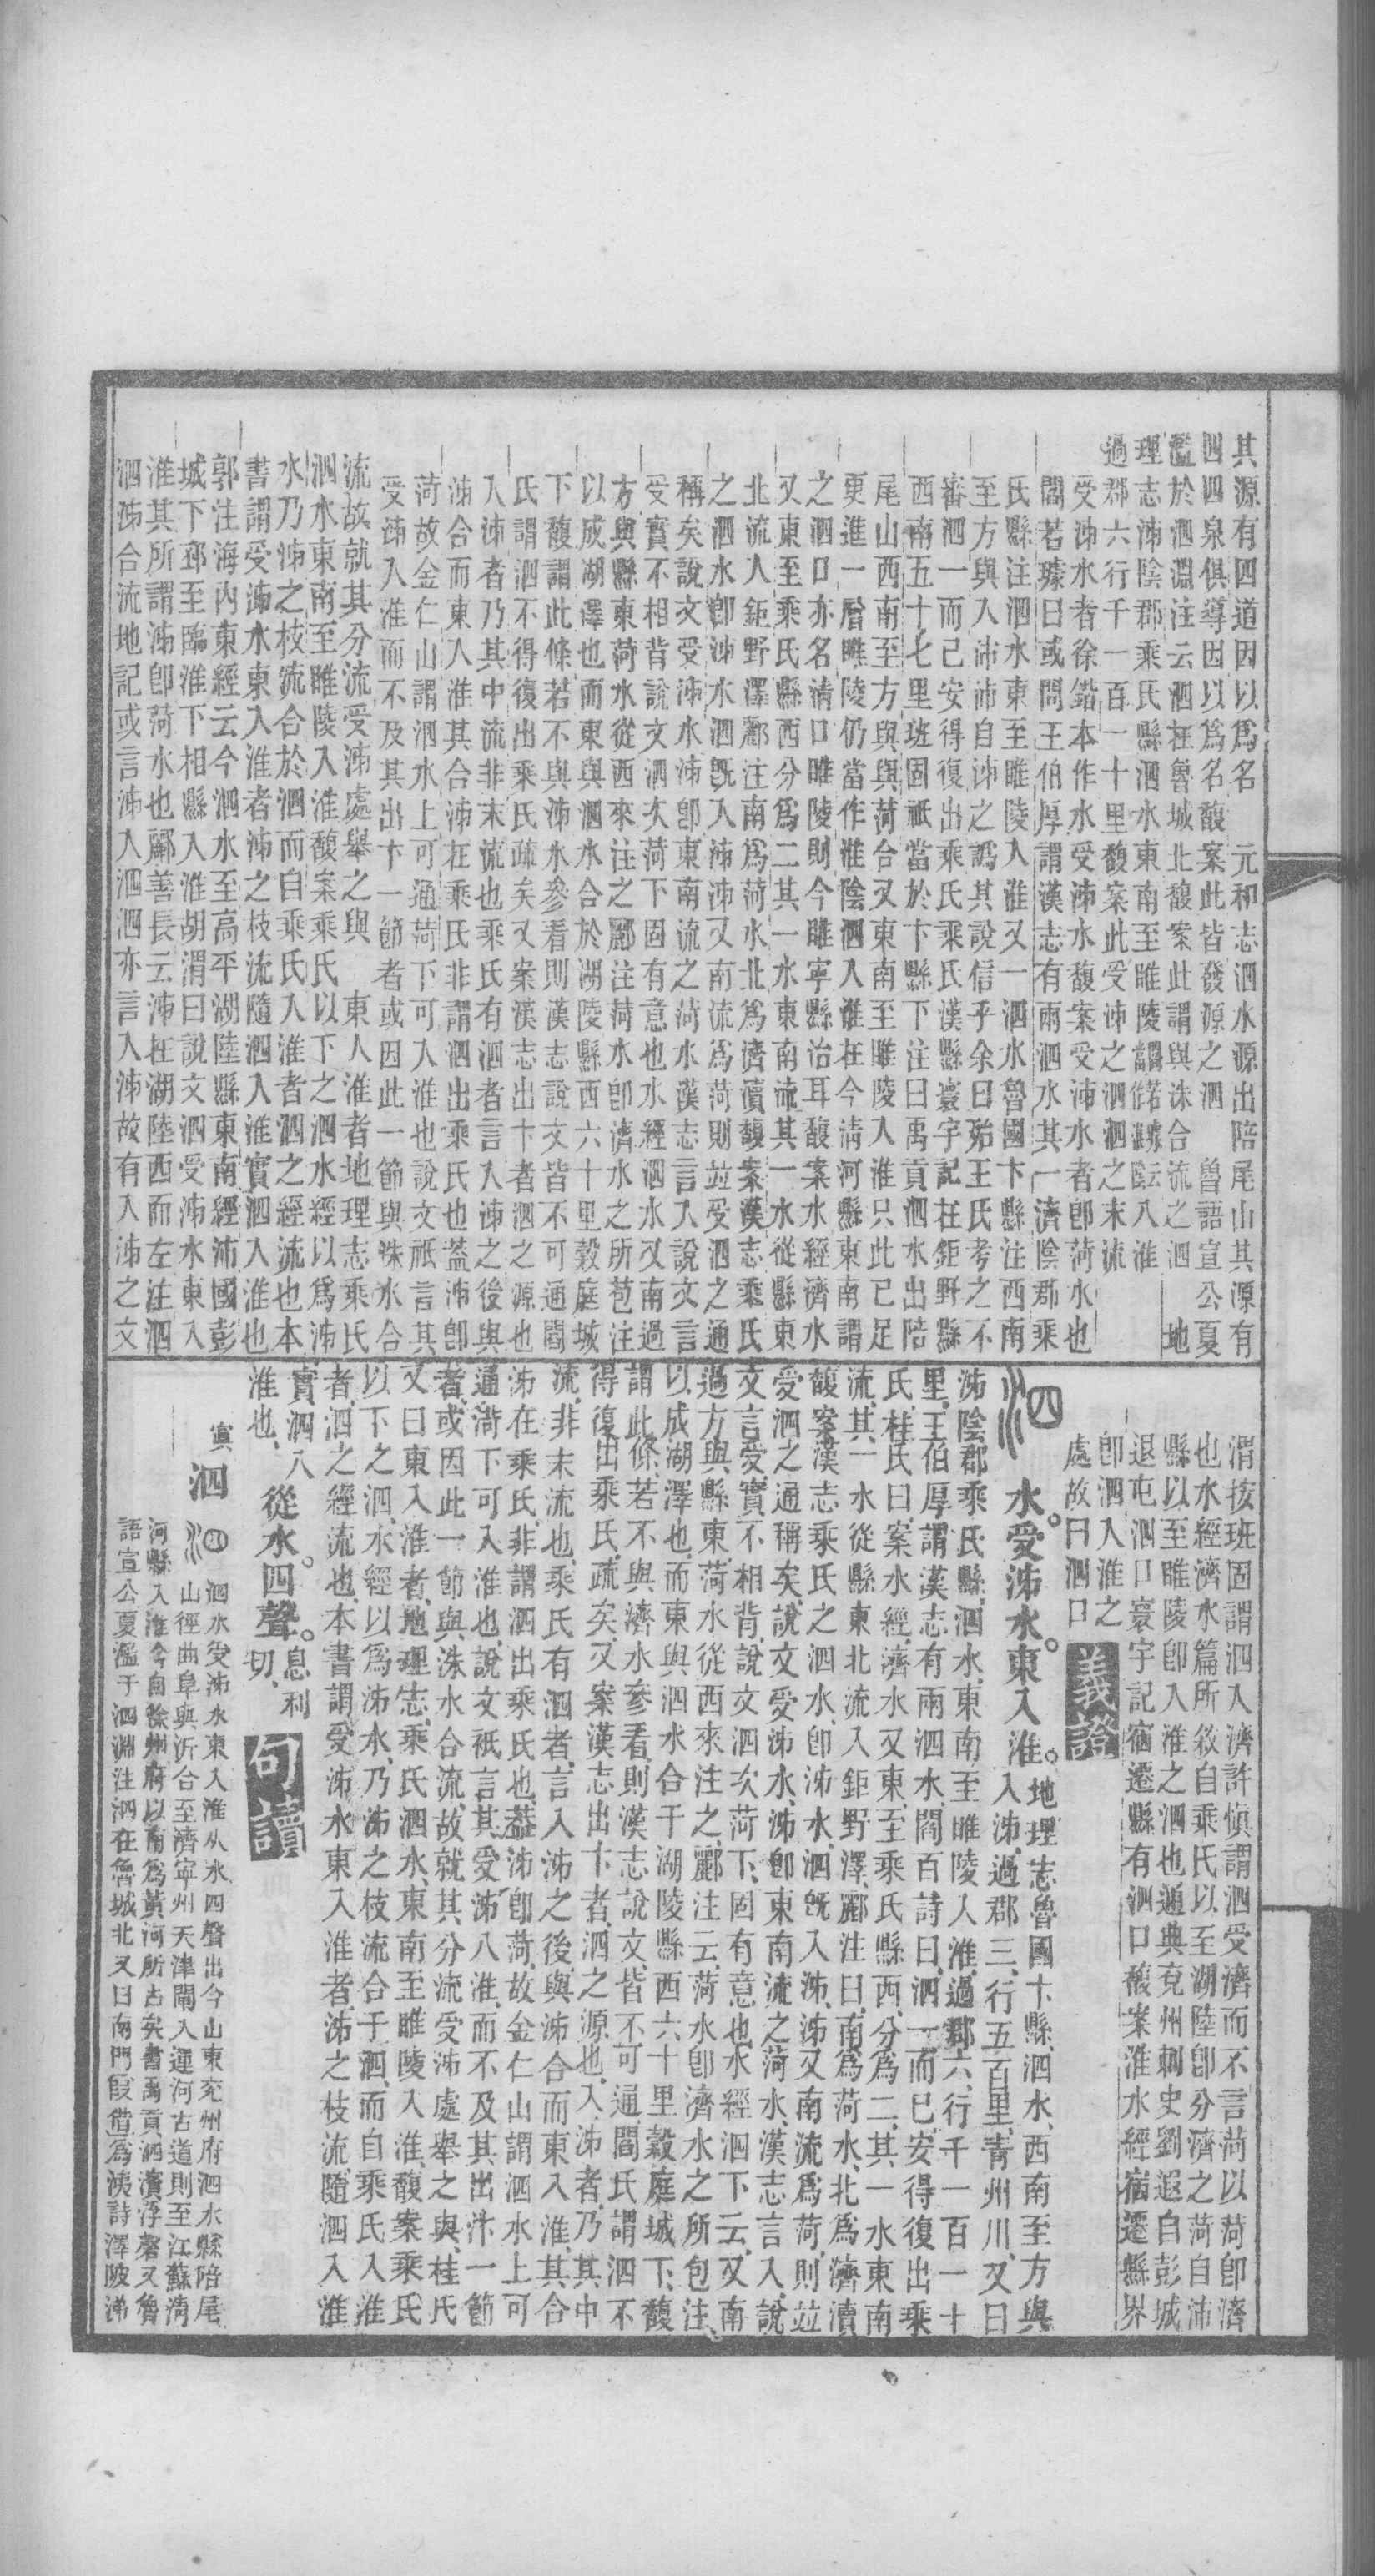 其源有四道因以爲名　元和志泗水源出陪尾山其源有
四四泉俱導因以爲名馥案此皆發源之泗　魯語宣公夏
濫於泗淵注云泗在魯城北馥案此謂與洙合流之泗　地
理志泲陰郡乘氏縣泗水東南至睢陵入淮
過郡六行千一百一十里馥案此受泲之泗泗之末流
受泲水者徐鍇本作水受泲水馥案受泲水者卽菏水也
閻若璩曰或問王伯厚謂漢志有兩泗水其一濟陰郡乘
氏縣注泗水東至睢陵入淮又一泗水魯國卞縣注西南
至方與入沛沛自泲之譌其說信乎余曰殆王氏考之不
審泗一而已安得復出乘氏乘氏漢縣寰宇記在鉅野縣
西南五十七里班固祇當於卞縣下注曰禹貢泗水出陪
尾山西南至方與與菏合又東南至睢陵入淮只此已足
更進一層睢陵仍當作淮陰泗入淮在今淸河縣東南謂
之泗口亦名淸口睢陵則今睢寧縣治耳馥案水經濟水
又東至乘氏縣西分爲二其一水東南流其一水從縣東
北流入鉅野澤酈注南爲菏水北爲濟瀆馥案漢志乘氏
之泗水卽泲水泗旣入泲泲又南流爲菏則竝受泗之通
稱矣說文受泲水泲卽東南流之菏水漢志言入說文言
受實不相背說文泗次菏下固有意也水經泗水又南過
方與縣東菏水從西來注之酈注菏水卽濟水之所苞注
以成湖澤也而東與泗水合於湖陵縣西六十里穀庭城
下馥謂此條若不與泲水參看則漢志說文皆不可通閻
氏謂泗不得復出乘氏疎矣又案漢志出卞者泗之源也
入泲者乃其中流非末流也乘氏有泗者言入泲之後與
泲合而東入淮其合泲在乘氏非謂泗出乘氏也蓋泲卽
菏故金仁山謂泗水上可通菏下可入淮也說文祇言其
受泲入淮而不及其出卞一節者或因此一節與洙水合
流故就其分流受泲處舉之與　東入淮者地理志乘氏
泗水東南至睢陵入淮馥案乘氏以下之泗水經以爲泲
水乃泲之枝流合於泗而自乘氏入淮者泗之經流也本
書謂受泲水東入淮者泲之枝流隨泗入淮實泗入淮也
郭注海內東經云今泗水至高平湖陸縣東南經沛國彭
城下邳至臨淮下相縣入淮胡渭曰說文泗受泲水東入
淮其所謂泲卽菏水也酈善長云泲在湖陸西而左注泗
泗泲合流地記或言泲入泗泗亦言入泲故有入泲之文
渭按班固謂泗入濟許愼謂泗受濟而不言菏以菏卽濟
也水經濟水篇所敘自乘氏以至湖陸卽分濟之菏自沛
縣以至睢陵卽入淮之泗也通典兗州刺史劉遐自彭城
退屯泗口寰宇記宿遷縣有泗口馥案淮水經宿遷縣界
卽泗入淮之
處故曰泗口　義證
水受泲水東入淮。地理志魯國卞縣泗水西南至方與
入泲過郡三行五百里靑州川又曰
泲陰郡乘氏縣泗水東南至睢陵入淮過郡六行千一百一十
里王伯厚謂漢志有兩泗水閻百詩曰泗一而已安得復出乘
氏桂氏曰案水經濟水又東至乘氏縣西分爲二其一水東南
流其一水從縣東北流入鉅野澤酈注曰南爲菏水北爲濟瀆
馥案漢志乘氏之泗水卽泲水泗旣入泲泲又南流爲菏則竝
受泗之通稱矣說文受泲水泲卽東南流之菏水漢志言入說
文言受實不相背說文泗次菏下固有意也水經泗下云又南
過方與縣東菏水從西來注之酈注云菏水卽濟水之所包注
以成湖澤也而東與泗水合于湖陵縣西六十里穀庭城下馥
謂此條若不與濟水參看則漢志說文皆不可通閻氏謂泗不
得復出乘氏疏矣又案漢志出卞者泗之源也入泲者乃其中
流非末流也乘氏有泗者言入泲之後與泲合而東入淮其合
泲在乘氏非謂泗出乘氏也蓋泲卽菏故金仁山謂泗水上可
通菏下可入淮也說文祇言其受泲入淮而不及其出汴一節
者或因此一節與洙水合流故就其分流受泲處舉之與桂氏
又曰東入淮者地理志乘氏泗水東南至睢陵入淮馥案乘氏
以下之泗水經以爲泲水乃泲之枝流合于泗而自乘氏入淮
者泗之經流也本書謂受泲水東入淮者泲之枝流隨泗入淮
實泗入
淮也　從水四聲。息利切　句讀
泗　泗水受泲水東入淮从水四聲出今山東兗州府泗水縣陪尾
山徑曲阜與沂合至濟寧州天津閘入運河古道則至江蘇淸
河縣入淮今自徐州府以南爲黃河所占矣書禹貢泗濱浮磬又魯
語宣公夏濫于泗淵注泗在魯城北又曰南門叚借爲洟詩澤陂涕